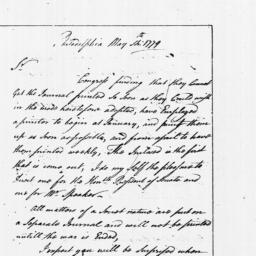 Philadelphia May 5th 1779
Sr
Congress finding that they Cannot
Get the Journal printed So Soon as they Could wish
in the mode heretofore adopted, have Employed
a printer to begin at January, and print them
up as Soon as possible, and from apart to have
them printed weekly, The Inclosed is the first
that is come out, I do my Self the pleasure to
Direct one for the Honble President of Senate and
one for Mr Speaker.
All matters of a Secret nature are put on
a Separate Journal and will not be printed
untill the war is Ended,
I expect you will be Surprised when